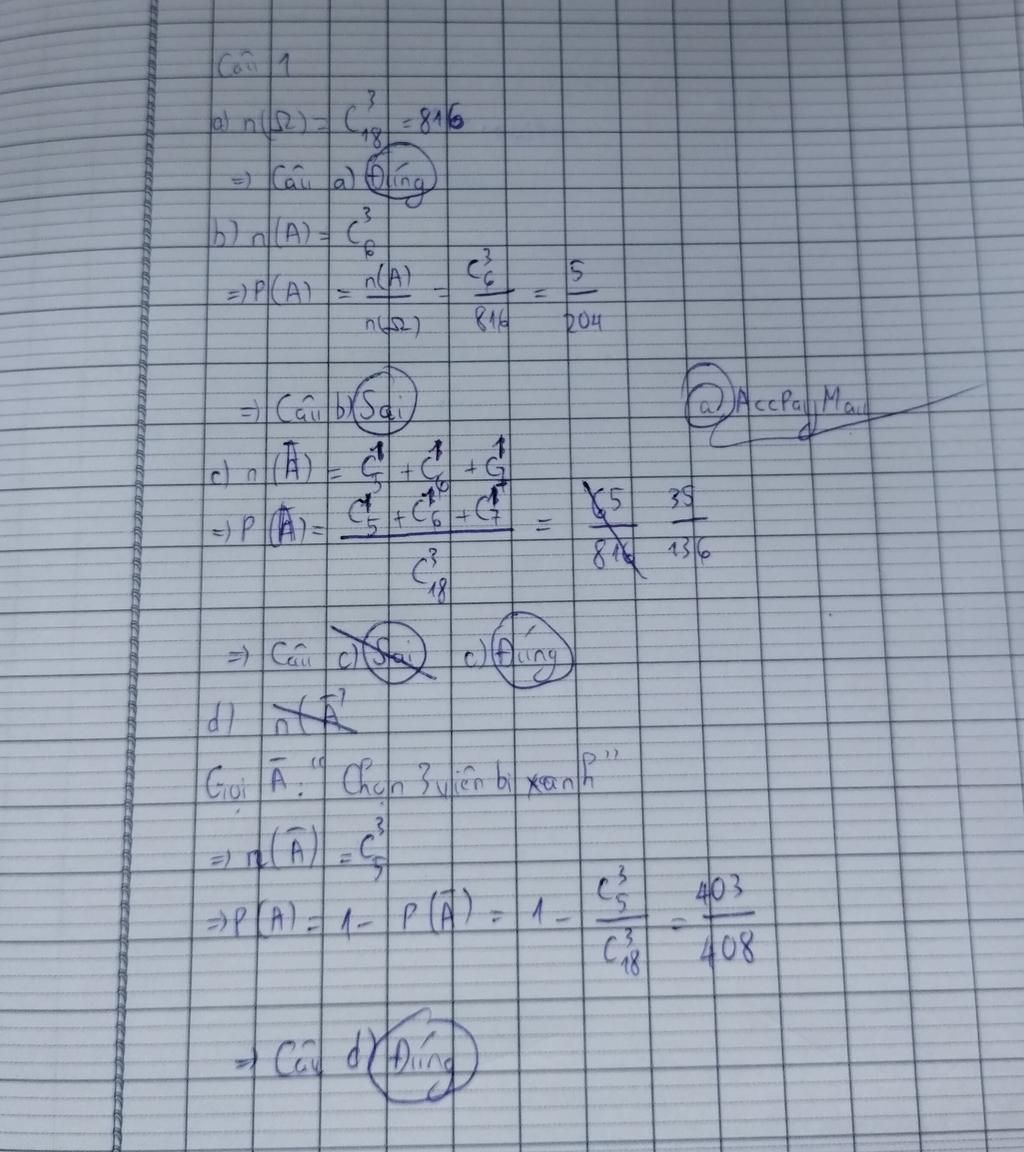 Câu 1
a) n(Ω) = C³₁₈ = 816
=> Câu a) Đúng
b) n(A) = C³₆
=> P(A) = n(A)/n(Ω) = C³₆/816 = 5/204
=> Câu b) Sai
@AccPayMau
c) n(Ā) = C¹₅ + C¹₆ + C¹₇
=> P(Ā) = (C¹₅ + C¹₆ + C¹₇)/C³₁₈ = 65/816 35/136
=> Câu c) Sai c) Đúng
d) n(Ā)
Gọi Ā: "Chọn 3 viên bi xanh"
=> n(Ā) = C³₅
=> P(A) = 1 - P(Ā) = 1 - C³₅/C³₁₈ = 403/408
=> Câu d) Đúng